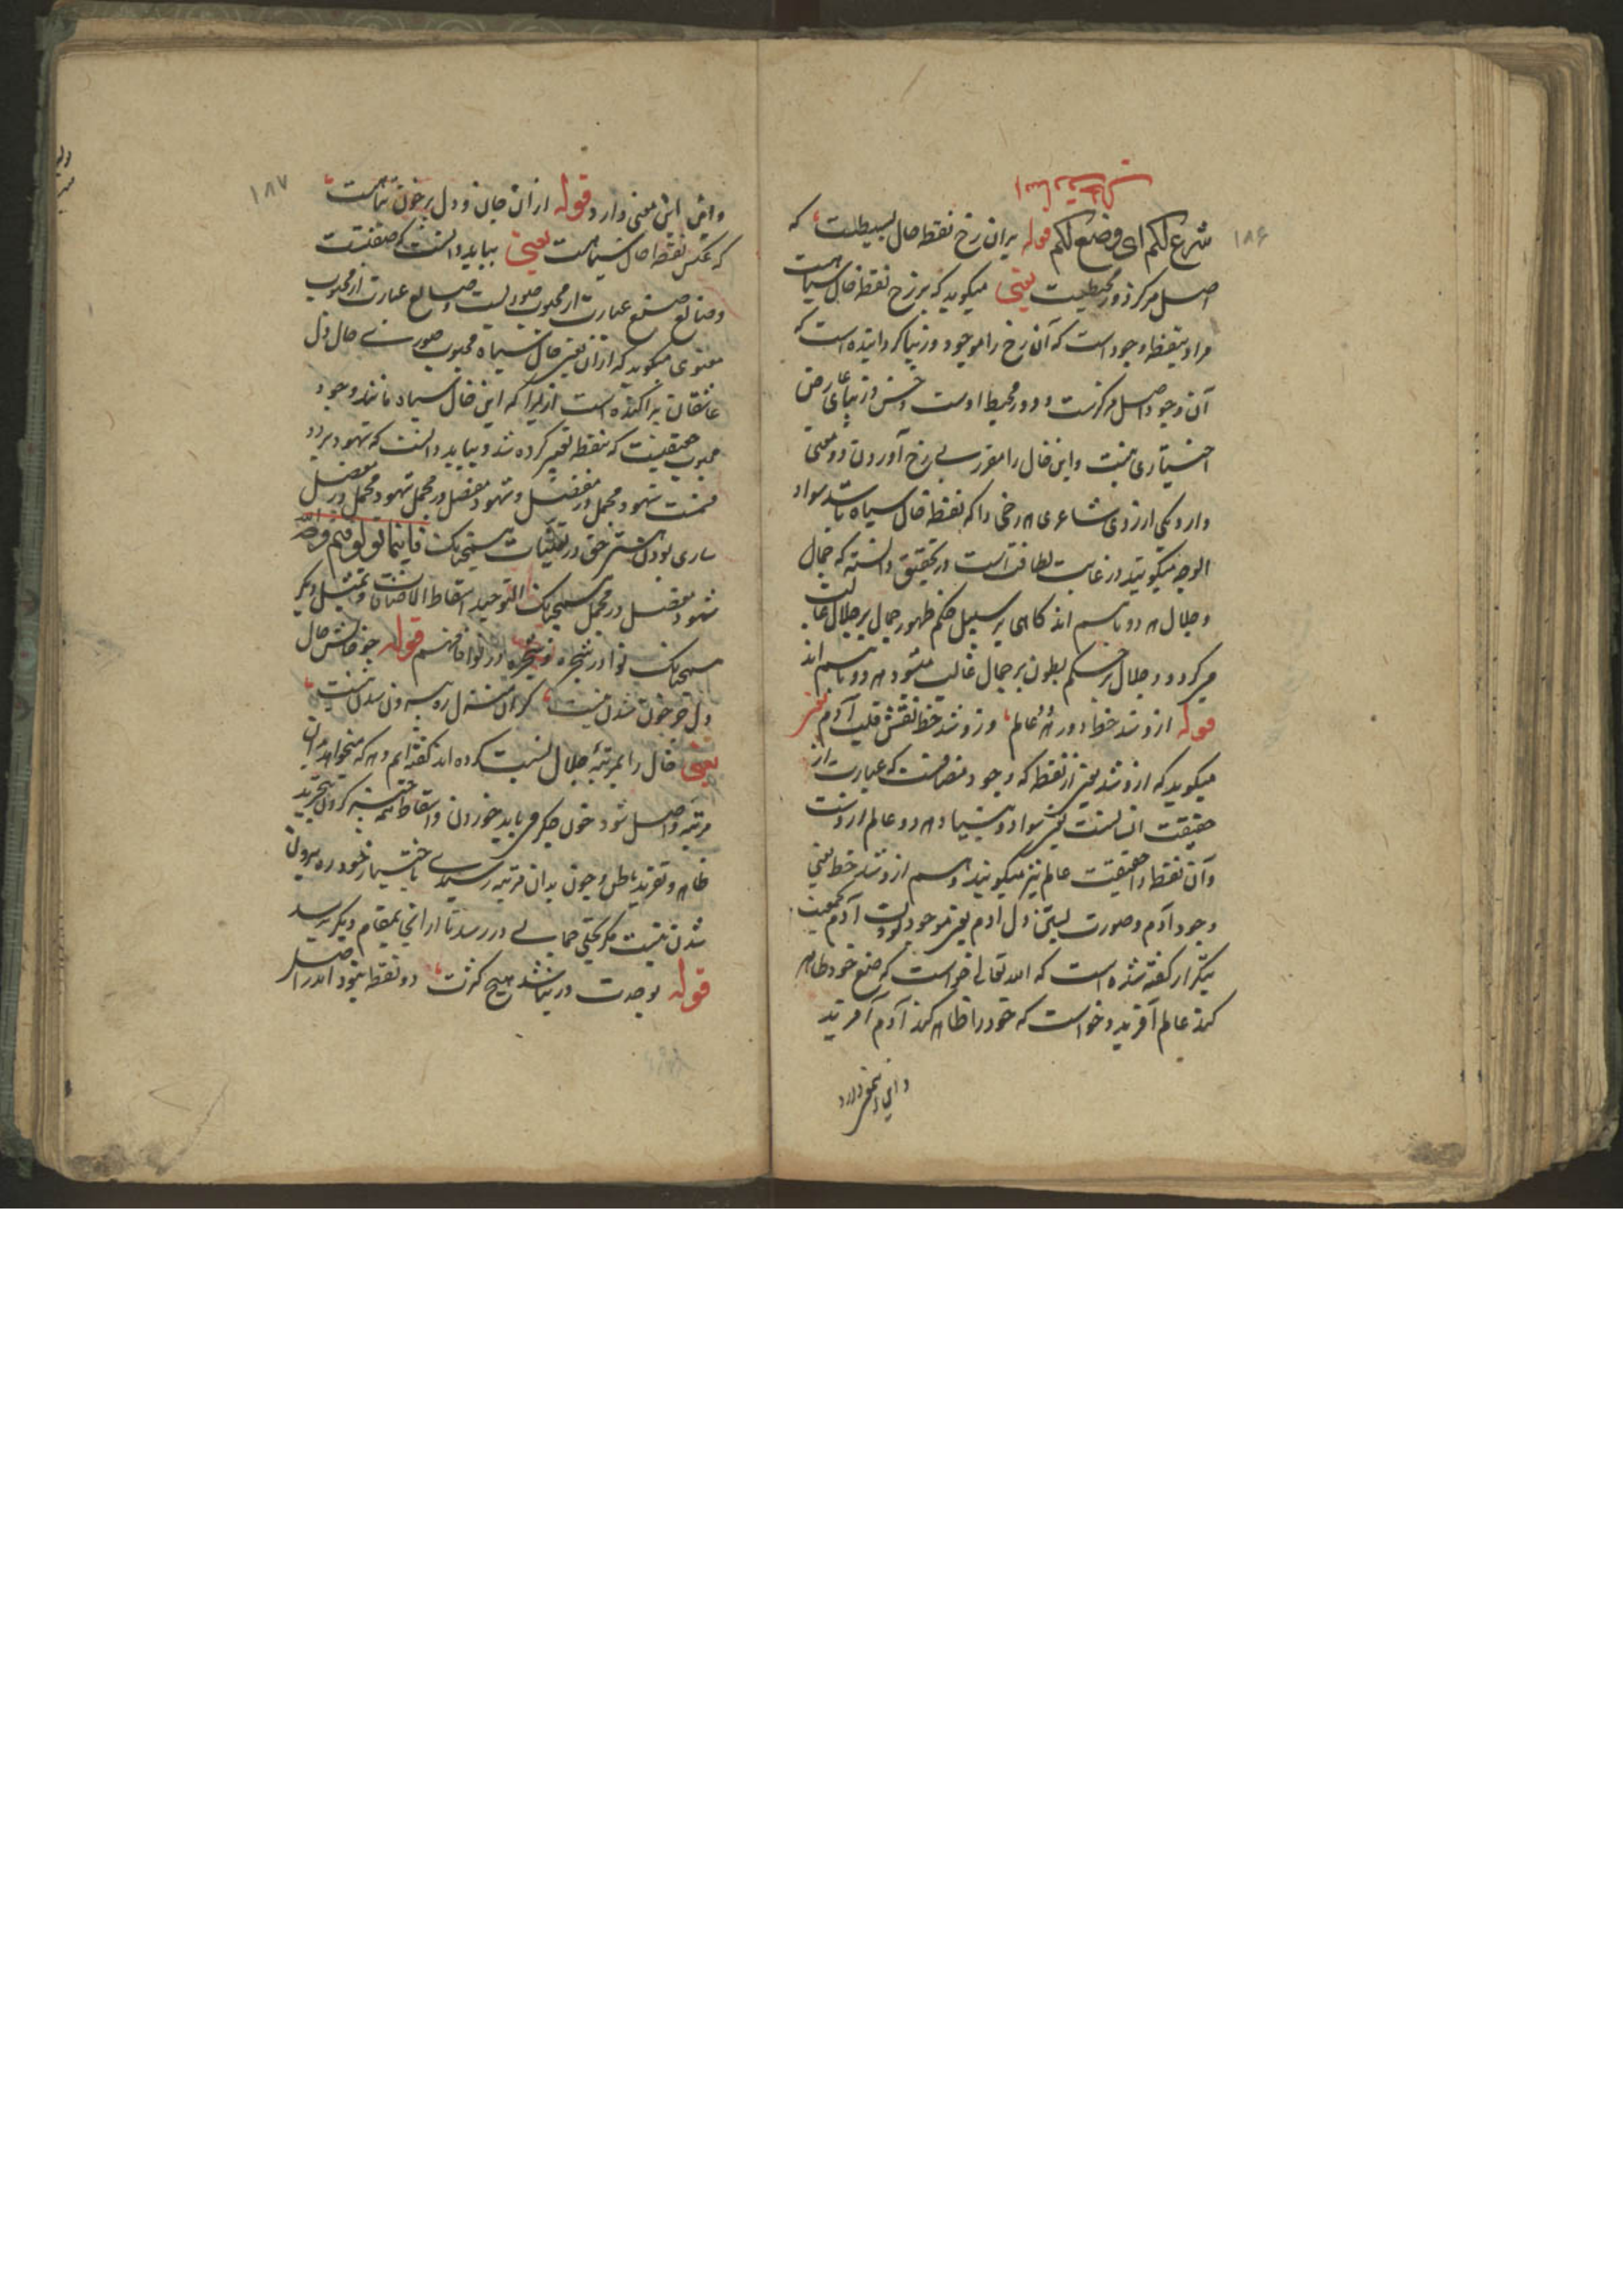 ۱۸۶
شرع لکم ای وضع لکم قوله بران رخ نقطه خال بسیطست که
اصل مرکز دور محیطست یعنی میکوید که بر رخ نقطه خال سیاهست
مراد بنقطه وجود است که آن رخ را موجود و زیبا کردانیده است که
آن وجود اصل مرکزست و دور محیط اوست و حسن و زیبائی عارضی
اختیاری نیست و این خال را مقرر بی رخ آوردن دو معنی
دارد یکی ازروی شاعری هر رخی را که نقطه خال سیاه باشد سواد
الوجه میکویند در غایت لطافتست در تحقیق دانسته که جمال
و جلال هر دو باسم اند کاهی بر سبیل حکم ظهور جمال بر جلال غالب
میکردد و جلال بحکم بطون بر جمال غالب میشود هر دو باسم اند
قوله ازو شد خط دور هر دو عالم وزو شد خط نقش قلب آدم یعنی
میکوید که ازو شد یعنی از نقطه که وجود متصلست که عبارت از
حقیقت انسانست یعنی سواد و هر دو عالم ازوست
و آن نقطه را حقیقت عالم نیز میکویند و هم ازو شد خط یعنی
وجود آدم و صورت بستن دل ادم یعنی موجودیت آدم
بتکرار کفته شده است که الله تعالی خواست که صنع خود ظاهر
کند عالم آفرید و خواست که خود را ظاهر کند آدم آفرید
و این معنی دارد
۱۸۷
و این معنی دارد قوله ازان جان و دل پرخون تباهست
که عکس نقطه خال سیاهست یعنی بباید دانست که صفتست
و صانع صنع عبارت از محبوب صوریست و صانع عبارت از محبوب
معنوی میکوید که ازان یعنی خال سیاه محبوب صوری حال دل
عاشقان پراکنده است ازیرا که این خال سیاه مانند وجود
محبوب حقیقیست که بنقطه تعبیر کرده شد و بباید دانست که شهود بر دو
قسمت شهود مجمل در مفصل و شهود مفصل در مجمل شهود مجمل در مفصل
ساری بودن حق در تعینات همچنانک فاینما تولوا فثم وجه الله
شهود مفصل در مجمل همچنانک التوحید اسقاط الاضافات و تمثیل دیکر
همچنانک نوا در شجره و شجره در نوا فافهم قوله جز خالش حال
دل جز خون شدن نیست کزان منزل ره بیرون شدن نیست
یعنی خال را بمرتبه جلال نسبت کرده اند کفته ایم و هر که میخواهد بدان
مرتبه واصل شود خون جکر می باید خوردن و اسقاط کردن بتجرید
ظاهر و تفرید باطن و چون بدان مرتبه رسید باختیار خود ره بیرون
شدن نیست مکر تجلی جمالی در رسد تا از انجا بمقام دیکر برسد
قوله بوحدت در نباشد هیچ کثرت دو نقطه نبود اندر اصل